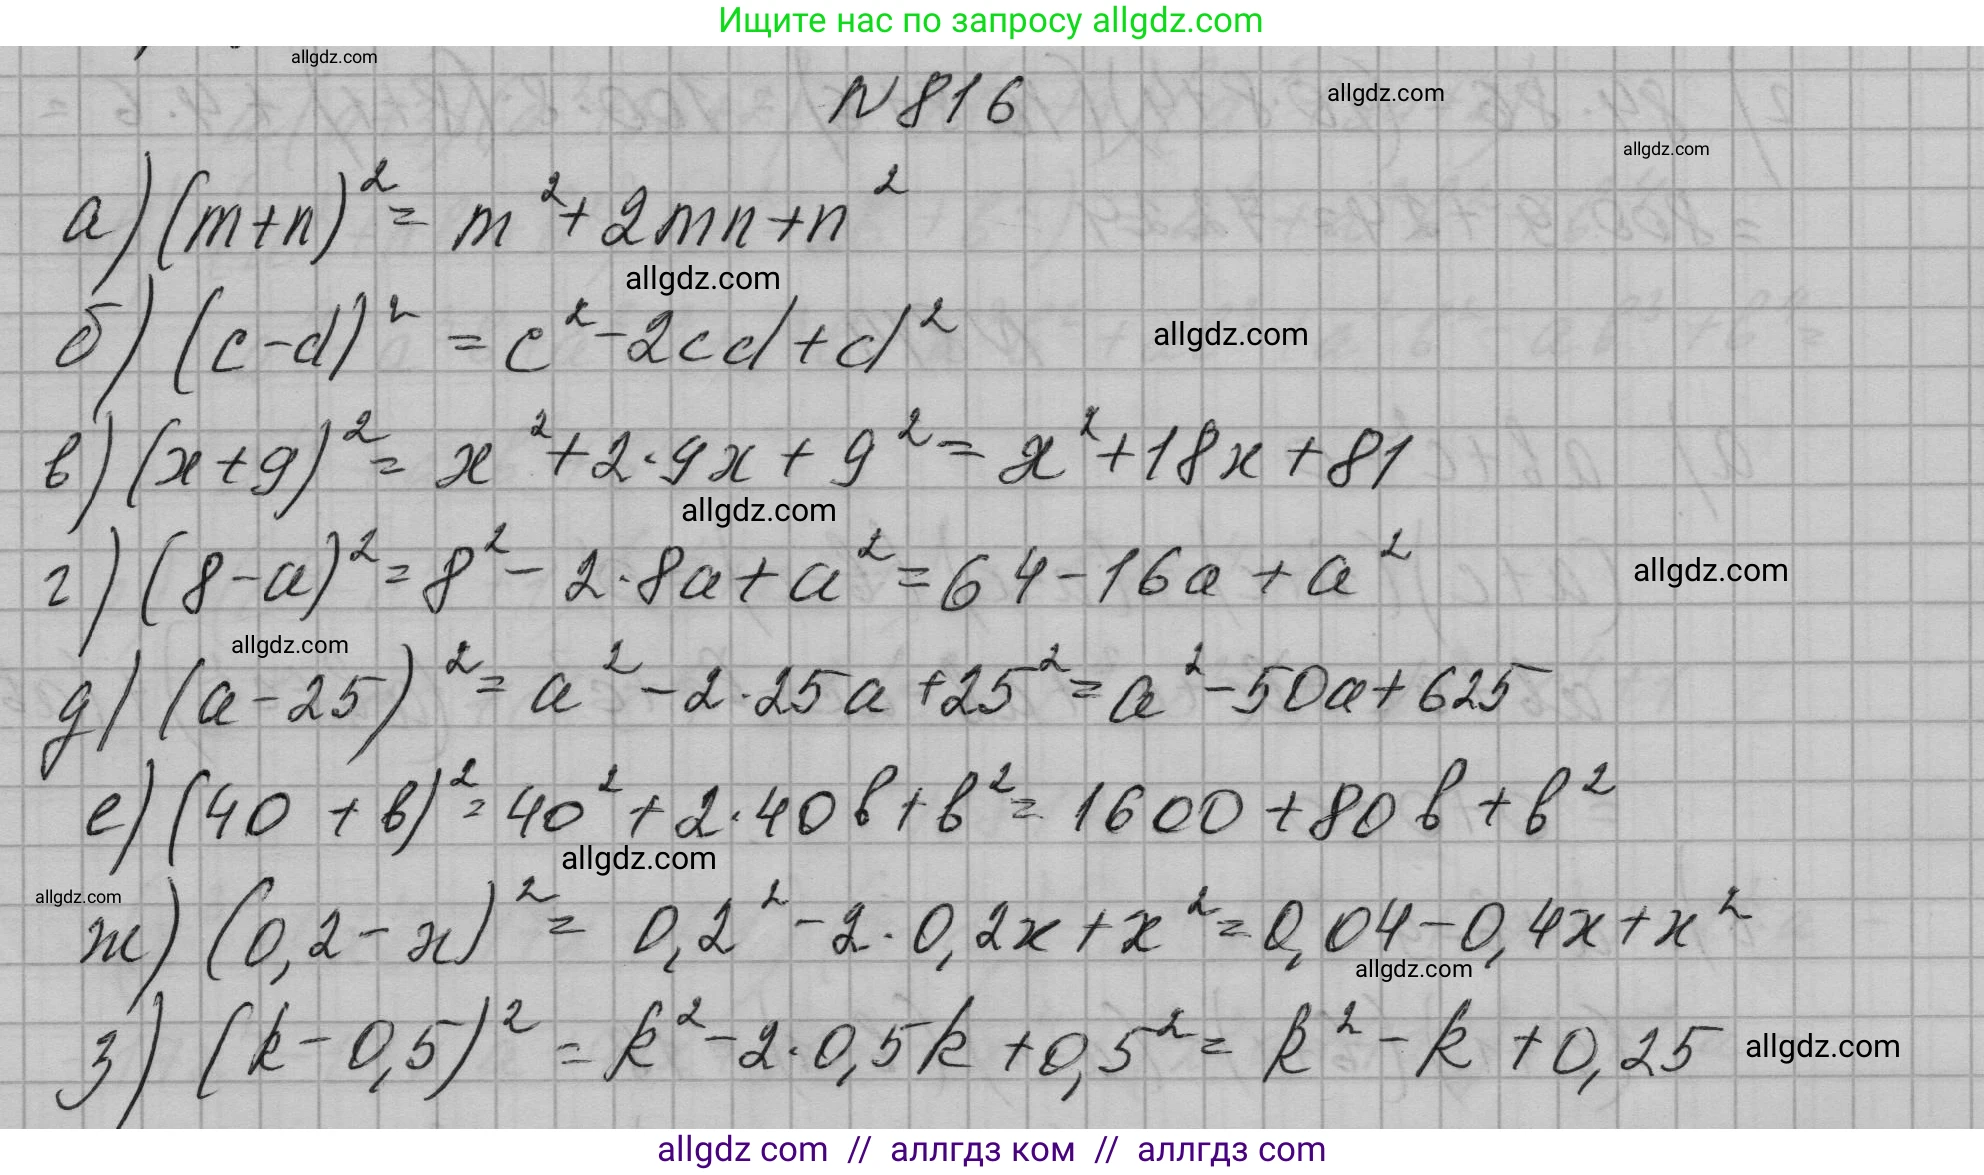 Ищите нас по запросу allgdz.com
allgdz.com
N 816
allgdz.com
allgdz.com
а) (m+n)² = m² + 2mn + n²
allgdz.com
б) (c-d)² = c² - 2cd + d²
allgdz.com
в) (x+9)² = x² + 2·9x + 9² = x² + 18x + 81
allgdz.com
г) (8-a)² = 8² - 2·8a + a² = 64 - 16a + a²
allgdz.com
allgdz.com
д) (a-25)² = a² - 2·25a + 25² = a² - 50a + 625
е) (40+b)² = 40² + 2·40b + b² = 1600 + 80b + b²
allgdz.com
allgdz.com
ж) (0,2-x)² = 0,2² - 2·0,2x + x² = 0,04 - 0,4x + x²
allgdz.com
з) (k-0,5)² = k² - 2·0,5k + 0,5² = k² - k + 0,25
allgdz.com
allgdz com // аллгдз ком // аллгдз com